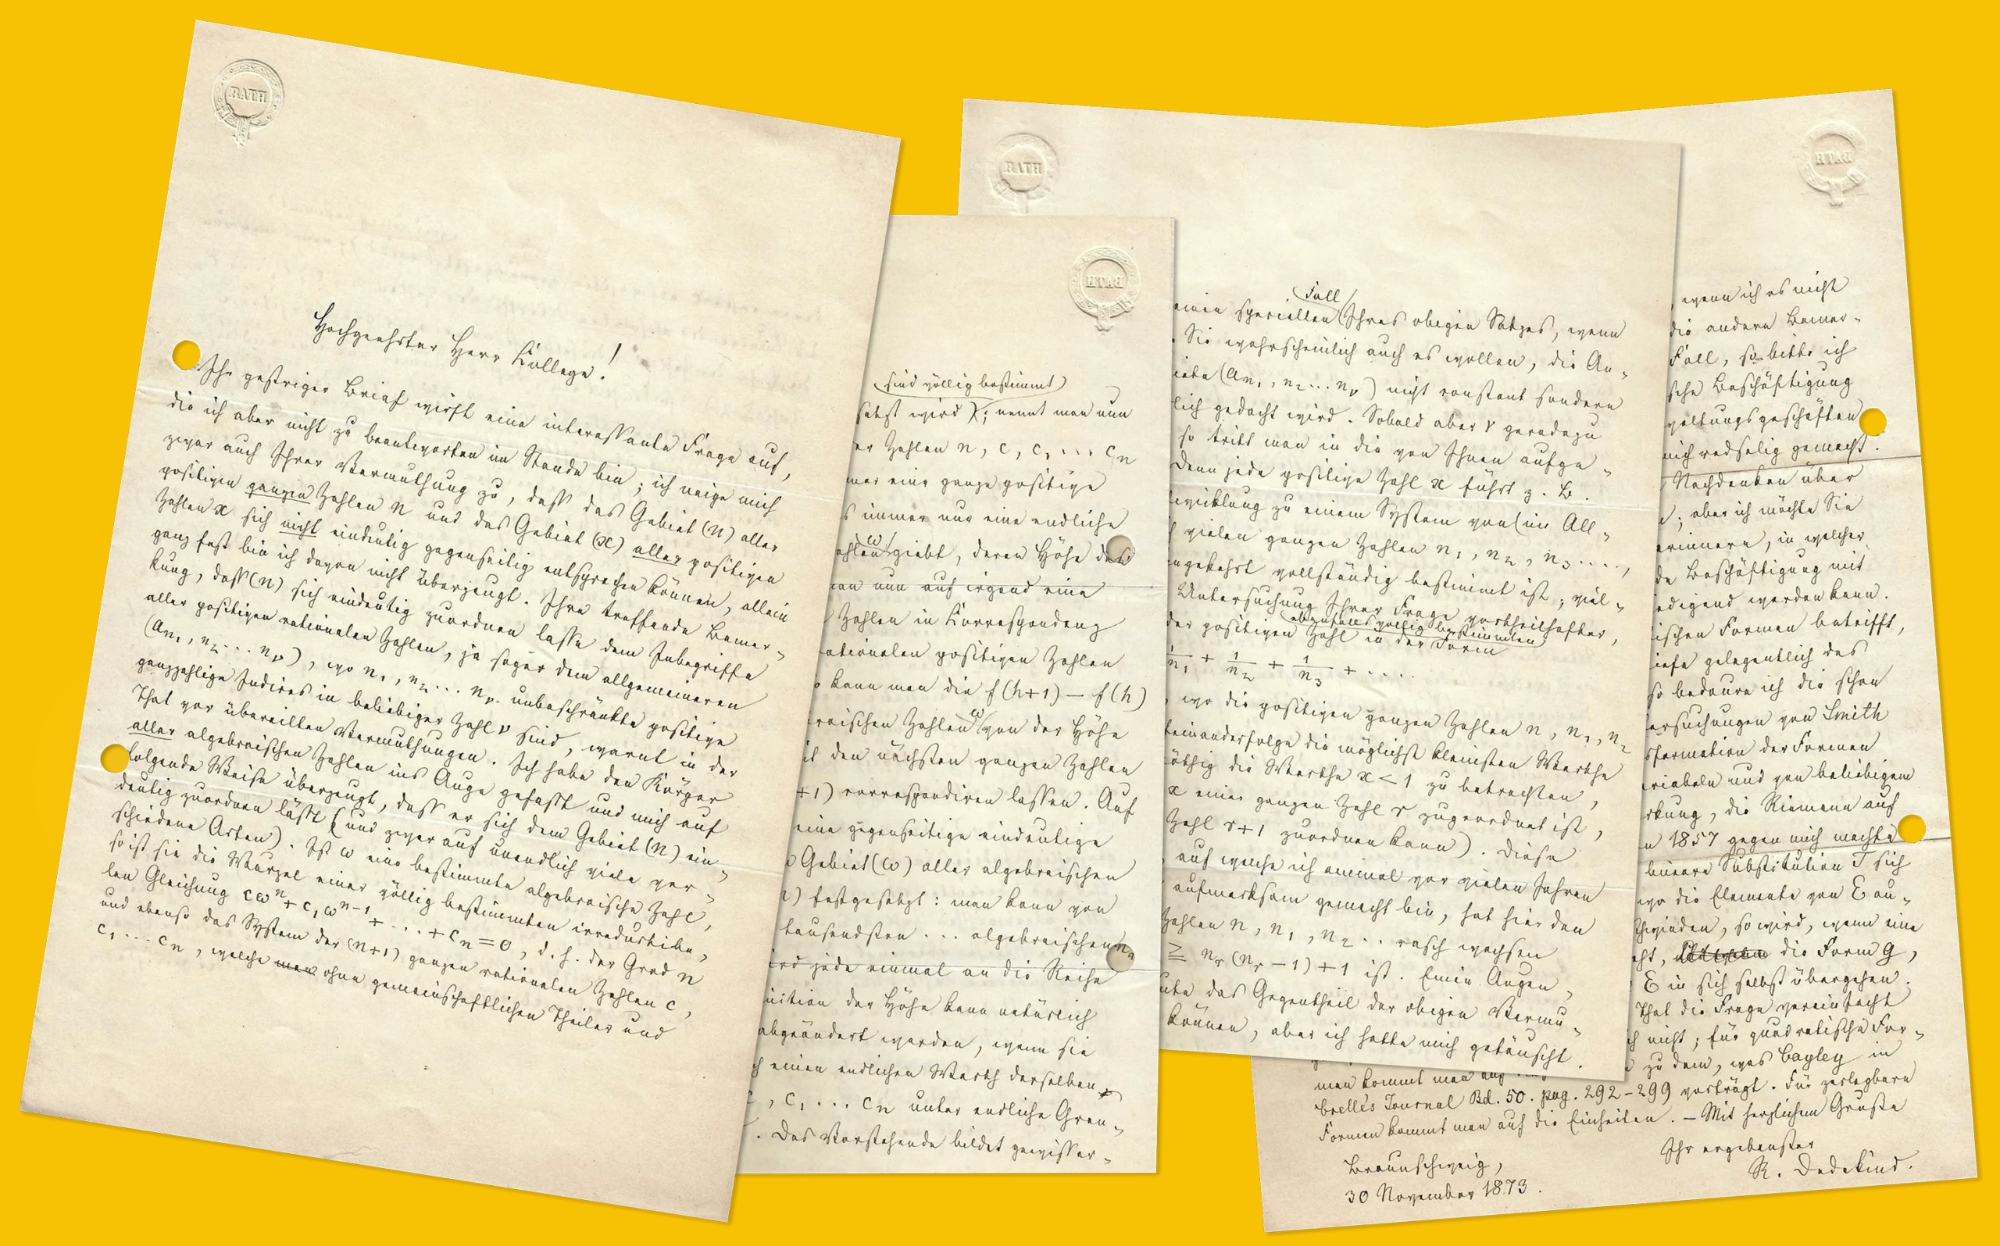 BATH
Hochgeehrter Herr College!
Ihr gestriger Brief wirft eine interessante Frage auf,
die ich aber nicht zu beantworten im Stande bin; ich neige mich
zwar auch Ihrer Vermuthung zu, dass das Gebiet (n) aller
positiven ganzen Zahlen n und das Gebiet (x) aller positiven
Zahlen x sich nicht eindeutig gegenseitig entsprechen können, allein
ganz fest bin ich davon nicht überzeugt. Ihre treffende Bemer-
kung, dass (n) sich eindeutig zuordnen lasse dem Inbegriffe
aller positiven rationalen Zahlen, ja sogar dem allgemeineren
(a n₁, n₂ ... nᵥ), wo n₁, n₂ ... nᵥ unbeschränkte positive
ganzzahlige Indices in beliebiger Zahl ν sind, warnt in der
That vor übereilten Vermuthungen. Ich habe den Körper
aller algebraischen Zahlen ins Auge gefasst und mich auf
folgende Weise überzeugt, dass er sich dem Gebiet (n) ein-
deutig zuordnen lässt (und zwar auf unendlich viele ver-
schiedene Arten). Ist ω eine bestimmte algebraische Zahl,
so ist sie die Wurzel einer völlig bestimmten irreductibe-
len Gleichung cωⁿ + c₁ωⁿ⁻¹ + ... + cₙ = 0, d. h. der Grad n
und ebenso das System der (n+1) ganzen rationalen Zahlen c,
c₁ ... cₙ, welche man ohne gemeinschaftlichen Theiler und
BATH
sind völlig bestimmt
setzt wird; nennt man nun
er Zahlen n, c, c₁ ... cₙ
mer eine ganze positive
s immer nur eine endliche
ahlen ω giebt, deren Höhe das
man nun auf irgend eine
Zahlen in Correspondenz
ationalen positiven Zahlen
o kann man die f(h+1) − f(h)
raischen Zahlen ω von der Höhe
it den nächsten ganzen Zahlen
+1) correspondiren lassen. Auf
eine gegenseitige eindeutige
Gebiet (ω) aller algebraischen
n) festgesetzt: man kann von
tausendsten ... algebraischen
ird jede einmal an die Reihe
inition der Höhe kann natürlich
abgeändert werden, wenn sie
h einen endlichen Werth derselben
c, c₁ ... cₙ unter endliche Gren-
. Das Vorstehende bildet gewisser-
BATH
Fall
einen speciellen Ihres obigen Satzes, wenn
Sie wahrscheinlich auch es wollen, die An-
(a n₁, n₂ ... nᵥ) nicht constant sondern
lich gedacht wird. Sobald aber ν geradezu
so tritt man in die von Ihnen aufge-
Denn jede positive Zahl x führt z. B.
wicklung zu einem System von (im All-
vielen ganzen Zahlen n₁, n₂, n₃ ....,
ngekehrt vollständig bestimmt ist; viel-
Untersuchung Ihrer Frage vortheilhafter,
ebenfalls völlig bestimmten
der positiven Zahl in der Form
1/n₁ + 1/n₂ + 1/n₃ + ....
, wo die positiven ganzen Zahlen n, n₁, n₂
feinanderfolge die möglichst kleinsten Werthe
öthig die Werthe x < 1 zu betrachten,
x einer ganzen Zahl r zugeordnet ist,
Zahl r+1 zuordnen kann). Diese
auf welche ich einmal vor vielen Jahren
aufmerksam gemacht bin, hat hier den
Zahlen n, n₁, n₂ .. rasch wachsen
≧ nᵣ(nᵣ−1)+1 ist. Einen Augen-
das Gegentheil der obigen Vermu-
können, aber ich hatte mich getäuscht.
BATH
, wenn ich es nicht
die andern Bemer-
Fall, so bitte ich
sche Beschäftigung
waltungsgeschäften
mich redselig gemacht.
Nachdenken über
; aber ich möchte Sie
erinnern, in welcher
de Beschäftigung mit
edigend werden kann.
ischen Formen betrifft,
iefe gelegentlich das
so bedaure ich die schon
ersuchungen von Smith
sformation der Formen
riabeln und von beliebigen
rkung, die Riemann auf
n 1857 gegen mich machte
lineare Substitution T sich
wo die Elemente von E au-
schwinden, so wird, wenn eine
ht, die Form g,
E in sich selbst übergehen.
That die Frage vereinfacht
h nicht; für quadratische For-
zu dem, was Cayley in
men kommt man auf
Crelle's Journal Bd. 50. pag. 292-299 vorträgt. Für zerlegbare
Formen kommt man auf die Einheiten. – Mit herzlichem Gruße
Ihr ergebenster
R. Dedekind.
Braunschweig,
30 November 1873.